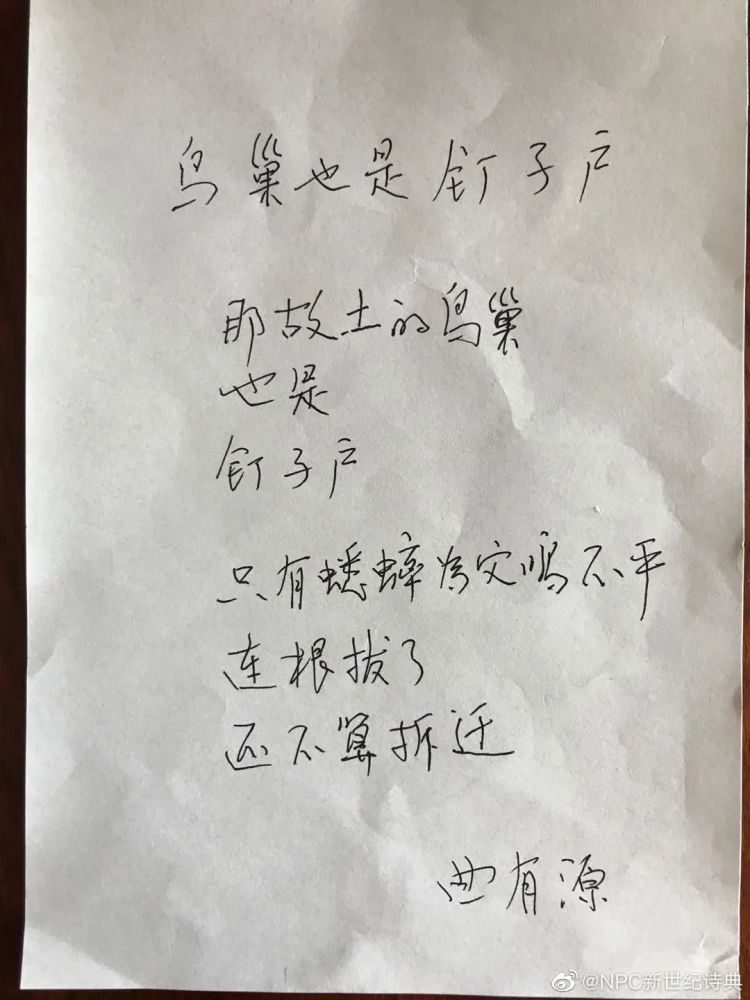 鸟巢也是钉子户
那故土的鸟巢
也是
钉子户
只有蟋蟀为它鸣不平
连根拔了
还不算拆迁
曲有源
@NPC新世纪诗典